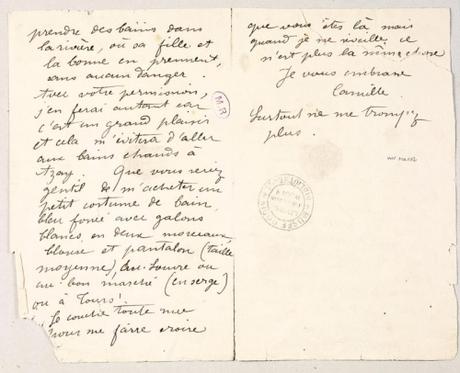 prendre des bains dans
la rivière, où sa fille et
la bonne en prennent,
sans aucun danger.
Avec votre permission,
j'en ferai autant car
c'est un grand plaisir
et cela m'évitera d'aller
aux bains chauds à
Azay. Que vous seriez
gentil de m'acheter un
petit costume de bain,
bleu foncé avec galons
blancs, en deux morceaux
blouse et pantalon (taille
moyenne), au Louvre ou
au bon marché (en serge)
ou à Tours!
Je couche toute nue
pour me faire croire
M R
que vous êtes là mais
quand je me réveille ce
n'est plus la même chose
Je vous embrasse
Camille
Surtout ne me trompez
plus.